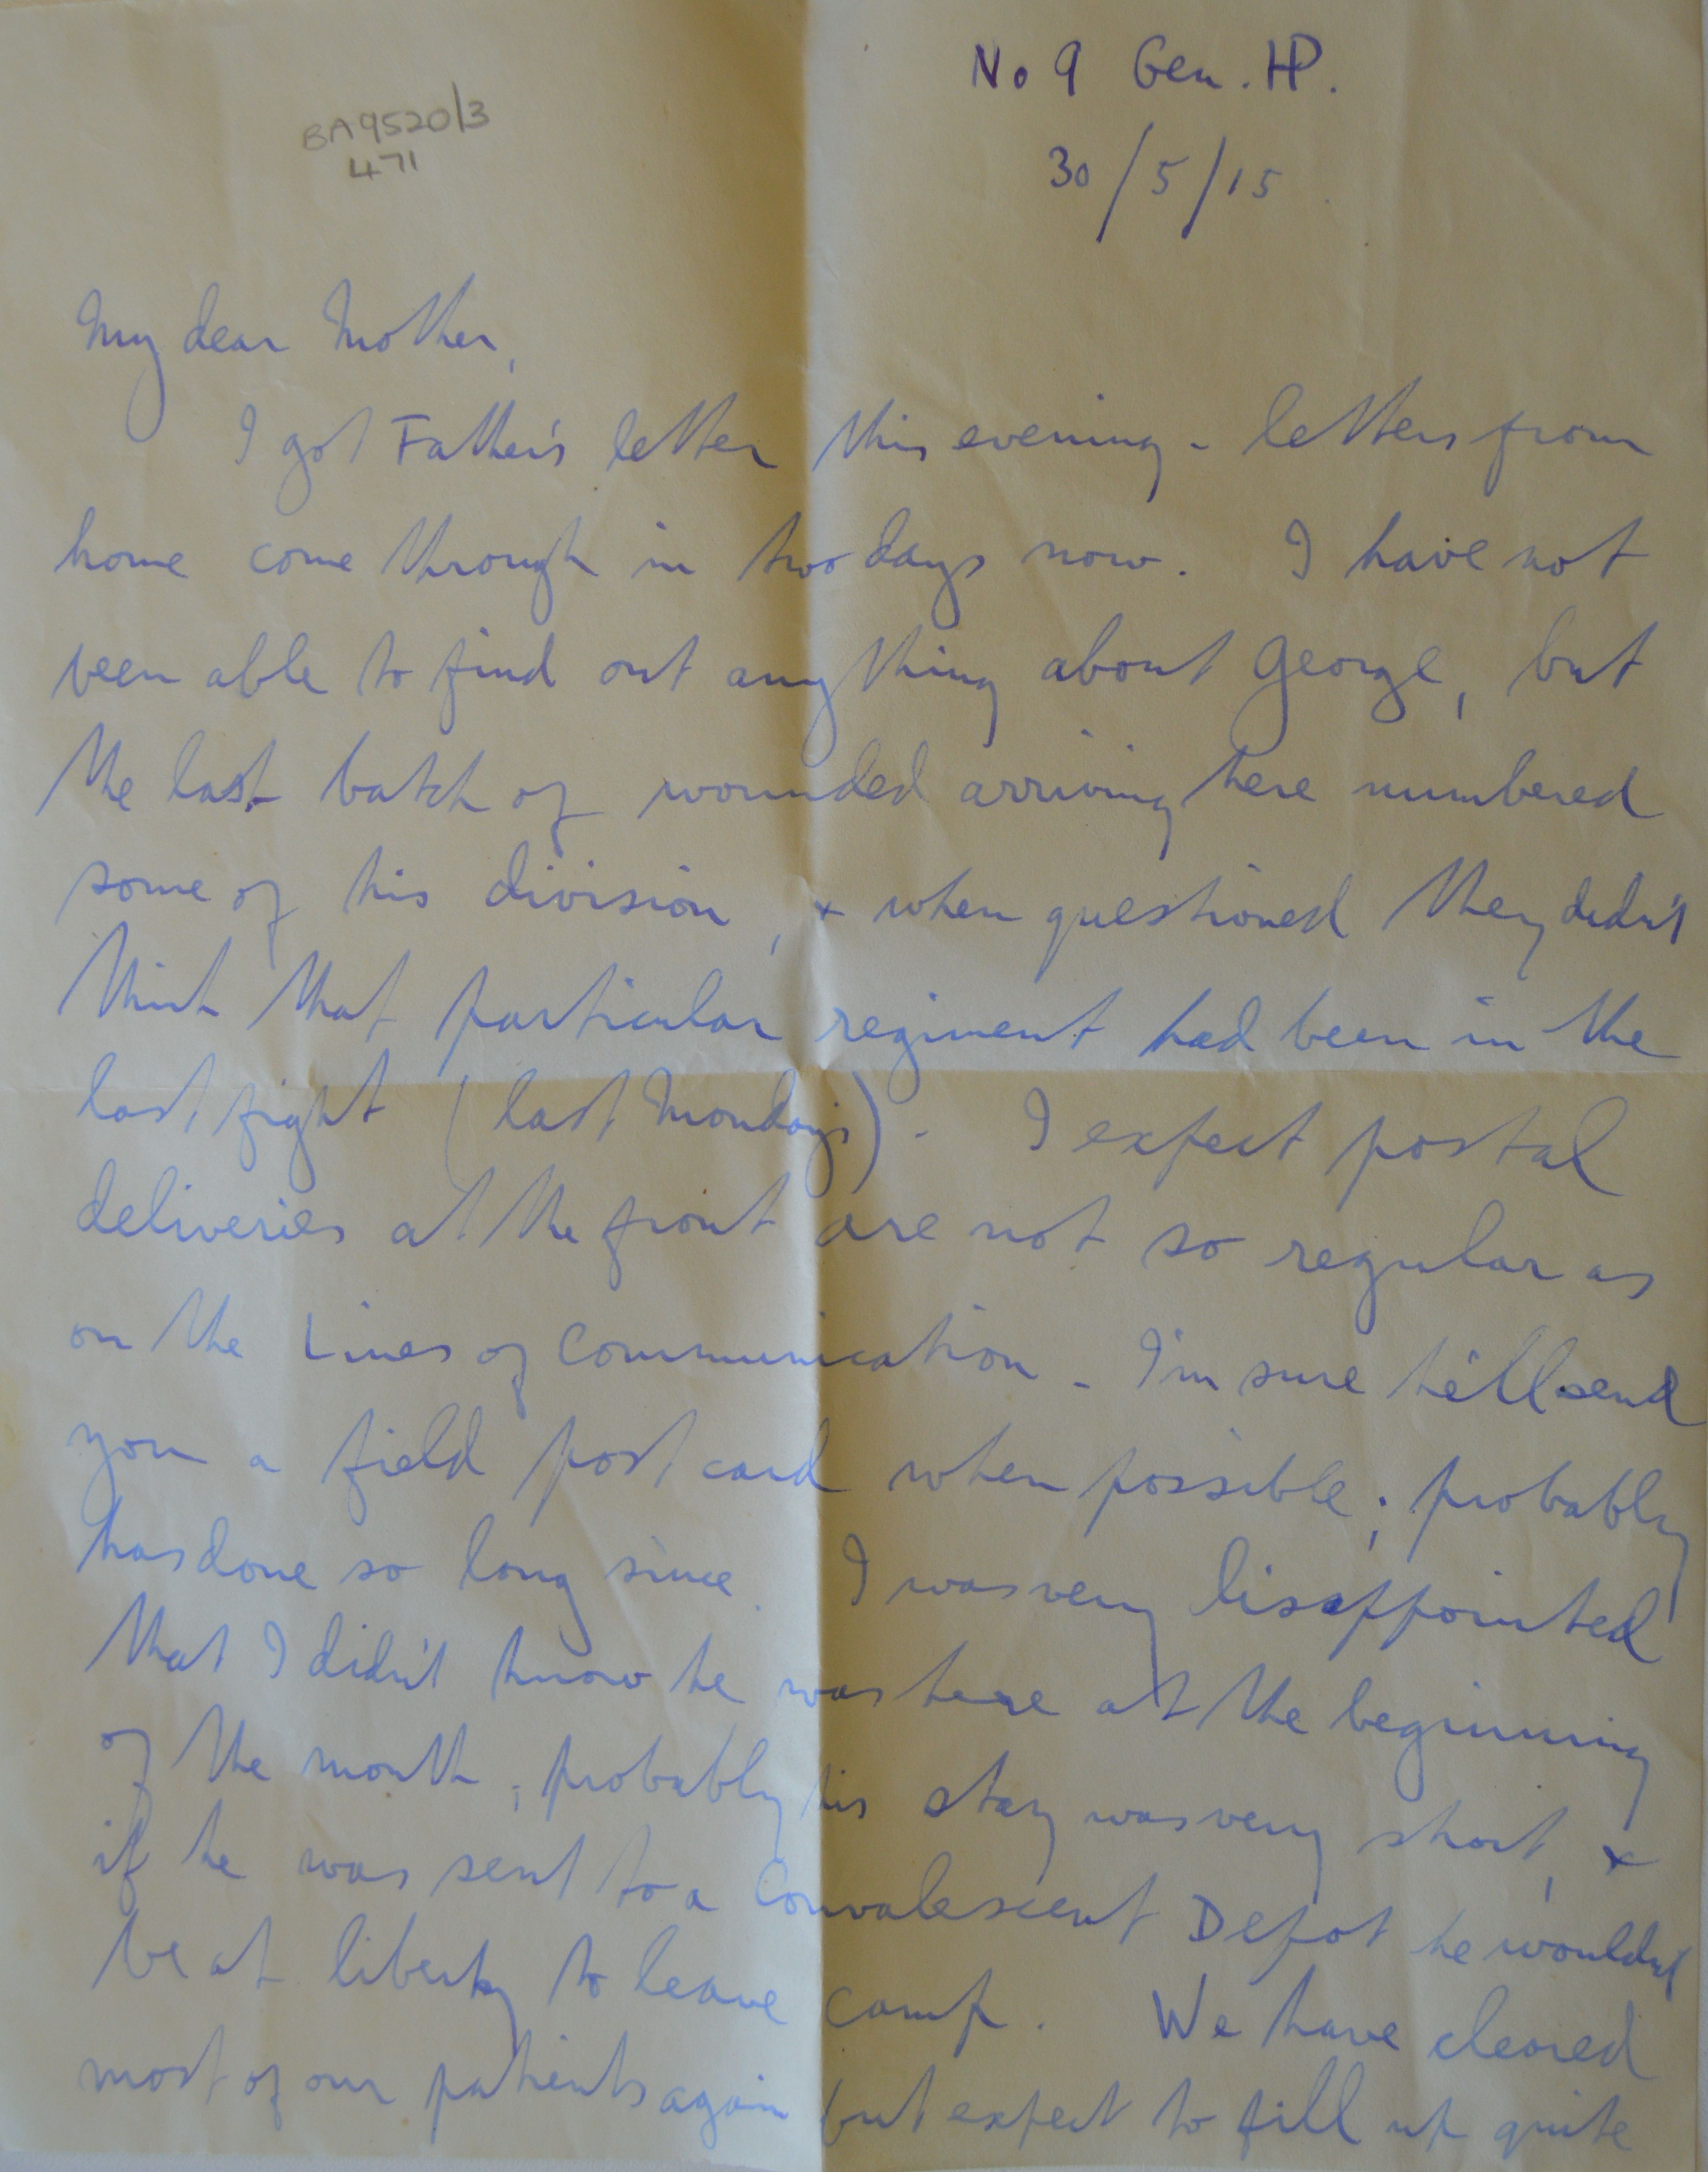 No 9 Gen. HP.
BA9520/3
471
30/5/15
My dear Mother,
I got Father's letter this evening - letters from
home come through in two days now. I have not
been able to find out anything about George, but
the last batch of wounded arriving here numbered
some of his division, + when questioned they didn't
think that particular regiment had been in the
last fight (last Monday's). I expect postal
deliveries at the front are not so regular as
on the Lines of Communication - I'm sure he'll send
you a field post card when possible; probably
has done so long since. I was very disappointed
that I didn't know he was here at the beginning
of the month; probably his stay was very short, +
if he was sent to a Convalescent Depot he wouldn't
be at liberty to leave camp. We have cleared
most of our patients again but expect to fill up quite